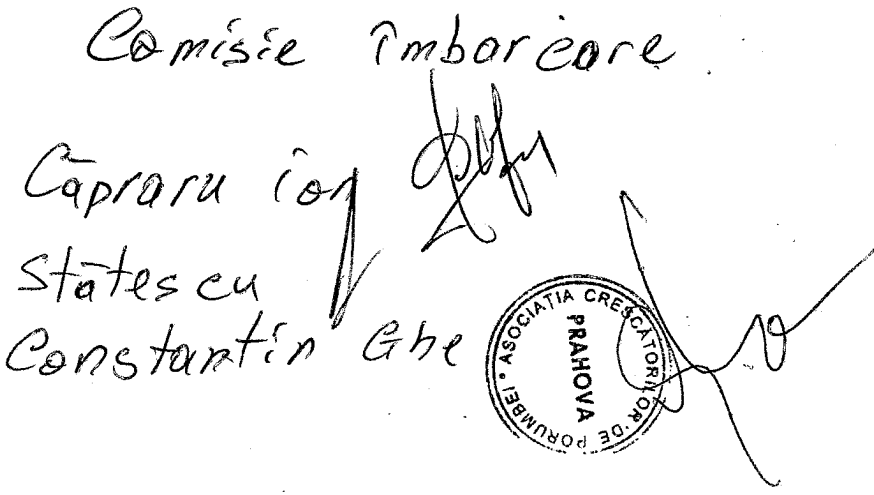 Comisie îmbarcare
Căpraru ion
Stătescu
Constantin Ghe
ASOCIAȚIA CRESCĂTORILOR DE PORUMBEI •
PRAHOVA